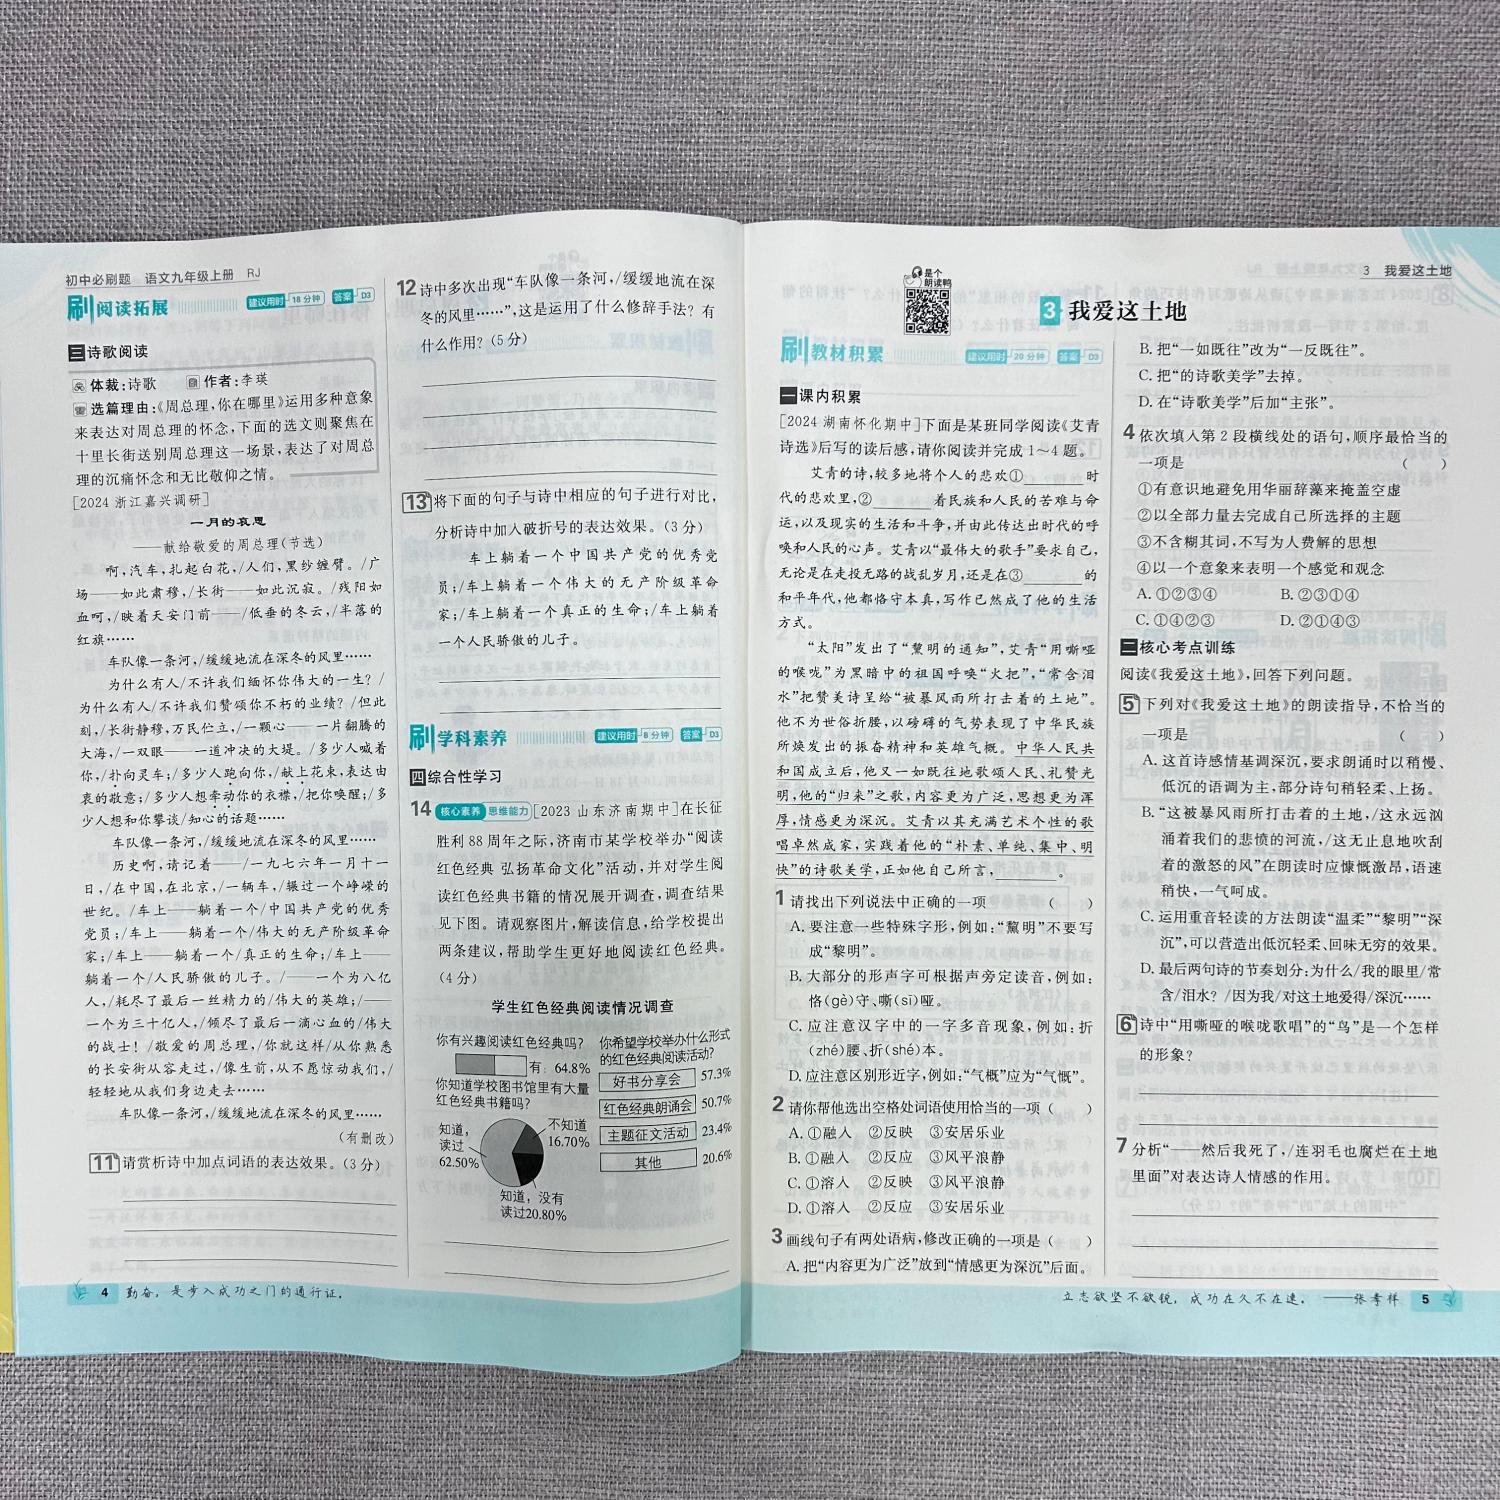 初中必刷题 语文九年级上册 RJ
刷 阅读拓展 建议用时 18 分钟 答案 D3
三 诗歌阅读
体裁:诗歌 作者:李瑛
选篇理由:《周总理,你在哪里》运用多种意象
来表达对周总理的怀念,下面的选文则聚焦在
十里长街送别周总理这一场景,表达了对周总
理的沉痛怀念和无比敬仰之情。
[2024 浙江嘉兴调研]
一月的哀思
——献给敬爱的周总理(节选)
啊,汽车,扎起白花,/人们,黑纱缠臂。/广
场——如此肃穆,/长街——如此沉寂。/残阳如
血呵,/映着天安门前——/低垂的冬云,/半落的
红旗……
车队像一条河,/缓缓地流在深冬的风里……
为什么有人/不许我们缅怀你伟大的一生?/
为什么有人/不许我们赞颂你不朽的业绩?/但此
刻,/长街静穆,万民伫立,/一颗心——一片翻腾的
大海,/一双眼——一道冲决的大堤。/多少人喊着
你,/扑向灵车;/多少人跑向你,/献上花束,表达由
衷的敬意;/多少人想牵动你的衣襟,/把你唤醒;/多
少人想和你攀谈/知心的话题……
车队像一条河,/缓缓地流在深冬的风里……
历史啊,请记着——/一九七六年一月十一
日,/在中国,在北京,/一辆车,/辗过一个峥嵘的
世纪。/车上——躺着一个/中国共产党的优秀
党员;/车上——躺着一个/伟大的无产阶级革命
家;/车上——躺着一个/真正的生命;/车上——
躺着一个/人民骄傲的儿子。/——一个为八亿
人,/耗尽了最后一丝精力的/伟大的英雄;/——
一个为三十亿人,/倾尽了最后一滴心血的/伟大
的战士!/敬爱的周总理,/你就这样/从你熟悉
的长安街从容走过,/像生前,从不愿惊动我们,/
轻轻地从我们身边走去……
车队像一条河,/缓缓地流在深冬的风里……
(有删改)
11 请赏析诗中加点词语的表达效果。(3 分)
4 勤奋,是步入成功之门的通行证。
12 诗中多次出现“车队像一条河,/缓缓地流在深
冬的风里……”,这是运用了什么修辞手法?有
什么作用?(5 分)
13 将下面的句子与诗中相应的句子进行对比,
分析诗中加入破折号的表达效果。(3 分)
车上躺着一个中国共产党的优秀党
员;/车上躺着一个伟大的无产阶级革命
家;/车上躺着一个真正的生命;/车上躺着
一个人民骄傲的儿子。
刷 学科素养 建议用时 8 分钟 答案 D3
四 综合性学习
14 核心素养 思维能力 [2023 山东济南期中]在长征
胜利 88 周年之际,济南市某学校举办“阅读
红色经典 弘扬革命文化”活动,并对学生阅
读红色经典书籍的情况展开调查,调查结果
见下图。请观察图片,解读信息,给学校提出
两条建议,帮助学生更好地阅读红色经典。
(4 分)
学生红色经典阅读情况调查
你有兴趣阅读红色经典吗?
有:64.8%
你知道学校图书馆里有大量
红色经典书籍吗?
知道,
读过
62.50%
不知道
16.70%
知道,没有
读过20.80%
你希望学校举办什么形式
的红色经典阅读活动?
好书分享会 57.3%
红色经典朗诵会 50.7%
主题征文活动 23.4%
其他 20.6%
3 我爱这土地
是个
朗读鸭
3 我爱这土地
刷 教材积累 建议用时 20 分钟 答案 D3
一 课内积累
[2024 湖南怀化期中]下面是某班同学阅读《艾青
诗选》后写的读后感,请你阅读并完成 1～4 题。
艾青的诗,较多地将个人的悲欢①______时
代的悲欢里,②______着民族和人民的苦难与命
运,以及现实的生活和斗争,并由此传达出时代的呼
唤和人民的心声。艾青以“最伟大的歌手”要求自己,
无论是在走投无路的战乱岁月,还是在③______的
和平年代,他都恪守本真,写作已然成了他的生活
方式。
“太阳”发出了“黧明的通知”,艾青“用嘶哑
的喉咙”为黑暗中的祖国呼唤“火把”,“常含泪
水”把赞美诗呈给“被暴风雨所打击着的土地”。
他不为世俗折腰,以磅礴的气势表现了中华民族
所焕发出的振奋精神和英雄气概。中华人民共
和国成立后,他又一如既往地歌颂人民、礼赞光
明,他的“归来”之歌,内容更为广泛,思想更为浑
厚,情感更为深沉。艾青以其充满艺术个性的歌
唱卓然成家,实践着他的“朴素、单纯、集中、明
快”的诗歌美学,正如他自己所言,______。
1 请找出下列说法中正确的一项 ( )
A. 要注意一些特殊字形,例如:“黧明”不要写
成“黎明”。
B. 大部分的形声字可根据声旁定读音,例如:
恪(gè)守、嘶(sī)哑。
C. 应注意汉字中的一字多音现象,例如:折
(zhé)腰、折(shé)本。
D. 应注意区别形近字,例如:“气概”应为“气慨”。
2 请你帮他选出空格处词语使用恰当的一项( )
A. ①融入 ②反映 ③安居乐业
B. ①融入 ②反应 ③风平浪静
C. ①溶入 ②反映 ③风平浪静
D. ①溶入 ②反应 ③安居乐业
3 画线句子有两处语病,修改正确的一项是( )
A. 把“内容更为广泛”放到“情感更为深沉”后面。
B. 把“一如既往”改为“一反既往”。
C. 把“的诗歌美学”去掉。
D. 在“诗歌美学”后加“主张”。
4 依次填入第 2 段横线处的语句,顺序最恰当的
一项是 ( )
①有意识地避免用华丽辞藻来掩盖空虚
②以全部力量去完成自己所选择的主题
③不含糊其词,不写为人费解的思想
④以一个意象来表明一个感觉和观念
A. ①②③④ B. ②③①④
C. ①④②③ D. ②①④③
二 核心考点训练
阅读《我爱这土地》,回答下列问题。
5 下列对《我爱这土地》的朗读指导,不恰当的
一项是 ( )
A. 这首诗感情基调深沉,要求朗诵时以稍慢、
低沉的语调为主,部分诗句稍轻柔、上扬。
B. “这被暴风雨所打击着的土地,/这永远汹
涌着我们的悲愤的河流,/这无止息地吹刮
着的激怒的风”在朗读时应慷慨激昂,语速
稍快,一气呵成。
C. 运用重音轻读的方法朗读“温柔”“黎明”“深
沉”,可以营造出低沉轻柔、回味无穷的效果。
D. 最后两句诗的节奏划分:为什么/我的眼里/常
含/泪水?/因为我/对这土地爱得/深沉……
6 诗中“用嘶哑的喉咙歌唱”的“鸟”是一个怎样
的形象?
7 分析“——然后我死了,/连羽毛也腐烂在土地
里面”对表达诗人情感的作用。
立志欲坚不欲锐,成功在久不在速。 ——张孝祥 5